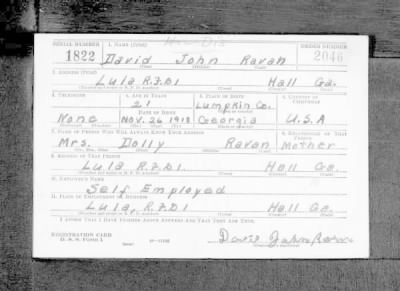 SERIAL NUMBER 1. NAME (Print) ORDER NUMBER
1822 David John Ravan 2046
2. ADDRESS (Print)
Lula R.F.D1 Hall Ga.
3. TELEPHONE 4. AGE IN YEARS 5. PLACE OF BIRTH 6. COUNTRY OF CITIZENSHIP
21 Lumpkin Co.
DATE OF BIRTH
None Nov. 26 1918 Georgia U.S.A
7. NAME OF PERSON WHO WILL ALWAYS KNOW YOUR ADDRESS 8. RELATIONSHIP OF THAT PERSON
Mrs. Dolly Ravan Mother
9. ADDRESS OF THAT PERSON
Lula R.F.D1. Hall Ga.
10. EMPLOYER'S NAME
Self Employed
11. PLACE OF EMPLOYMENT OR BUSINESS
Lula, R.F.D1 Hall Ga.
I AFFIRM THAT I HAVE VERIFIED ABOVE ANSWERS AND THAT THEY ARE TRUE.
REGISTRATION CARD
D. S. S. Form 1 David John Ravan